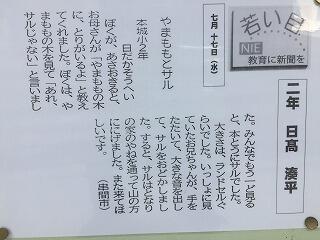 若い目
NIE
教育に新聞を
二年 日髙 湊平
七月 十七日(水)
やまももとサル
本城小2年
日だかそうへい
ぼくが、あさおきると、
お母さんが「やまももの木
に、とりがいるよ」と教え
てくれました。ぼくは、や
まももの木を見て「あれ、
サルじゃない」と言いまし
た。みんなでもう一ど見る
と、本とうにサルでした。
大きさは、ランドセルぐ
らいでした。いっしょに見
ていたお兄ちゃんが、手を
たたいて、大きな音を出し
て、サルをおどかしまし
た。すると、サルはとなり
の家のやねを通って山の方
ににげました。また来てほ
しいです。
(串間市)